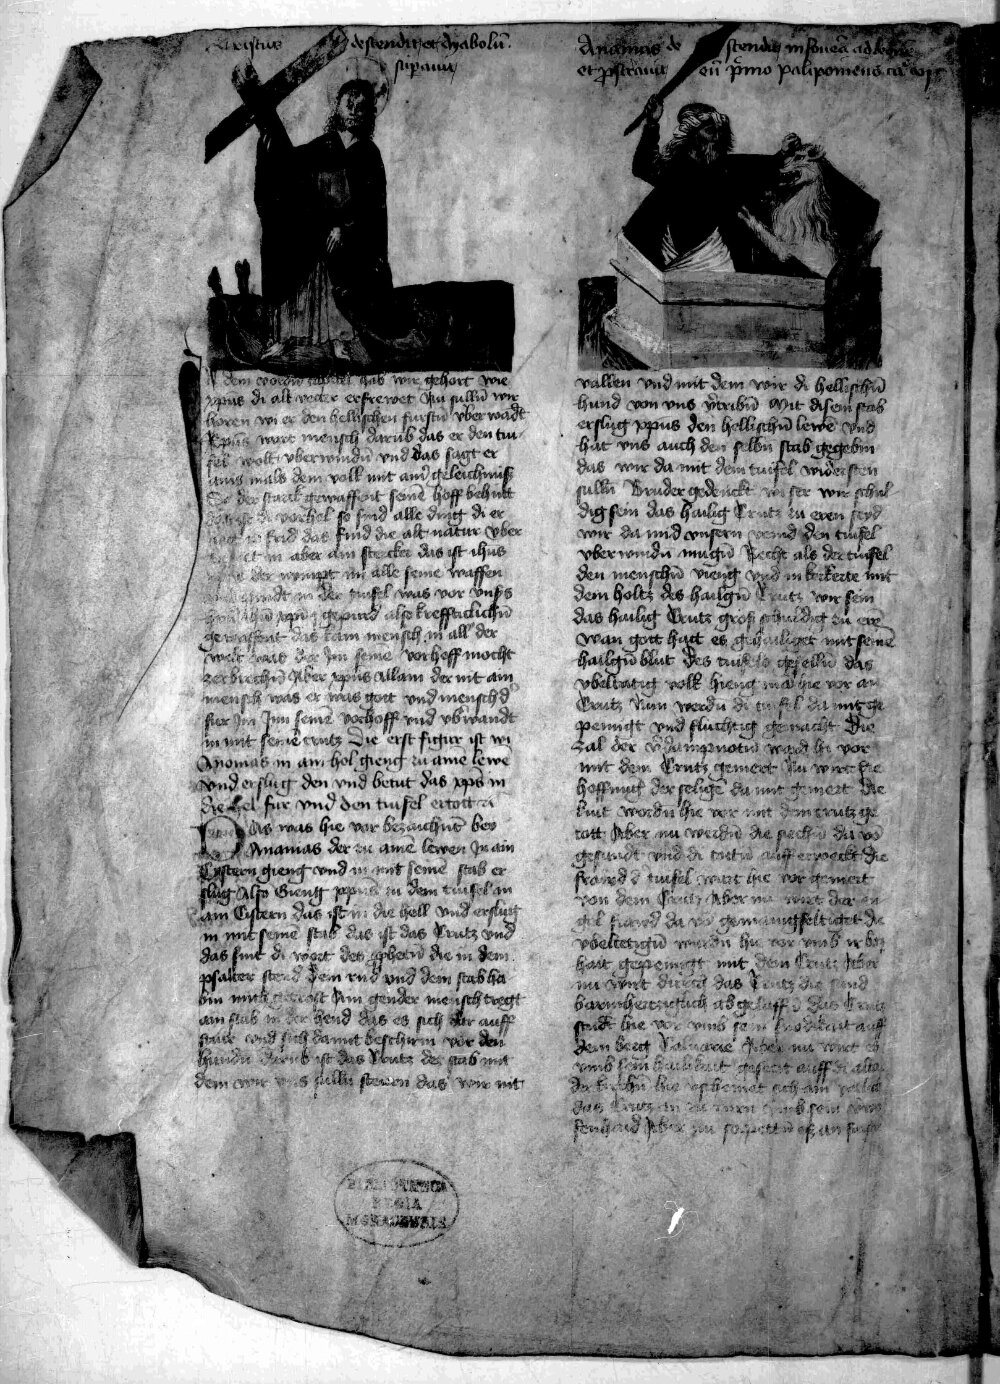 Christus descendit et dyabolū
supauit
Ananias de stendit in foueā ad leonē
et pstrauit eū pmo palipomenō
dem vordn̄ capitel hab wir gehort wie
xpūs di alt veter erfrewet Nu sullū wir
horen wi er den hellischen furstn̄ vber wādt
xpūs wart mensch darūb das er den tiu
fel wolt vberwindn̄ vnd das sagt er
ains mals dem volk mit ainr geleichnuss
So der starck gewaffent seinē hoff behutt
so sind alle ding di er
hat in frid das sind die alt natur vber
in aber ain stercker das ist ihūs
der nympt im alle seine waffen
der tiufel was vor
also kreffticlichn̄
gewaffent das kain mensch in all der
welt was der im seinē vorhoff mocht
zerbrechn̄ Aber xpūs Allain der nit ain
mensch was er was gott vnd mensch d
fur im Inn seinē vorhoff vnd vbwandt
in mit seinē crutz Die erst figur ist wi
Ananias in ain hol gieng zu aine lewē
vnd erslug den vnd betut das xpūs in
die hel fur vnd den tiufel ertott
Das was hie vor bezaichnet bey
Ananias der zu aine lewen In ain
Cystern gieng vnd in mit seinē stab er
slug Also Gieng xpūs zu dem tiufel in
ain Cistern das ist in die hell vnd erslug
in mit seinē stab das ist das Crutz vnd
das sint di wort des ꝓphetn̄ die in dem
psalter stend Dein rud vnd dein stab ha
bin mich getrost Ain gender mensch tregt
ain stab in der hend das es sich dar auff
stiur vnd sich damit beschirm vor den
hundn̄ Darūb ist das Crutz der stab mit
dem wir vns sulln̄ steuern das wir nit
vallen vnd mit dem wir di hellischn̄
hund von vns vtribn̄ Mit disem stab
erslug xpūs den hellischn̄ lewē vnd
hat vns auch den selbn̄ stab gegebin
das wir da mit dem tiufel widersten
sulln̄ Bruder gedenckt wi ser wir schul
dig sein das hailig Crutz zu eren seyd
wir da mid vnsern veind den tiufel
vberwindn̄ mugn̄ Recht als der tiufel
den menschn̄ vieng vnd in kerkerte mit
dem holtz des hailgn̄ Crutz wir sein
das hailig Crutz gross schuldig zu erē
wan gott hatt es gehailiget mit seinē
hailgn̄ blut des tiufels geselln̄ das
vbeltatig volk hieng mā hie vor an
Crutz Nun werdn̄ di tiufel da mit ge
peinigt vnd fluchtig gemacht Die
zal der vdampnotn̄ ward hi vor
mit dem Crutz gemert Nu wirt die
hoffnūg der seligē da mit gemert Die
lüut wordn̄ hie vor mit dem crutz ge
tott Aber nu werdn̄ die siechn̄ da vō
gesundt vnd di totn̄ auff erweckt die
frawd d tiufel wart hie vor gemert
von dem Crutz Aber nu wirt der en
gel frawd da vō gemanigfeltiget die
vbeltetign̄ wurdn̄ hie vor vmb ir bos
hait gepeinigt mit dem Crutz Aber
nu wirt durch das Crutz die sund
barmhertziglich abgelassē das Crutz
stuend hie vor vmb sein auff
dem berg Caluarie Aber nu wirt es
vmb sein hailikait gesetzt auff di altar
der kirchn̄ hie vscheinet sich ain
das Crutz an zu vmb sein
Aber nu
BIBLIOTHECA
REGIA
MONACENSIS